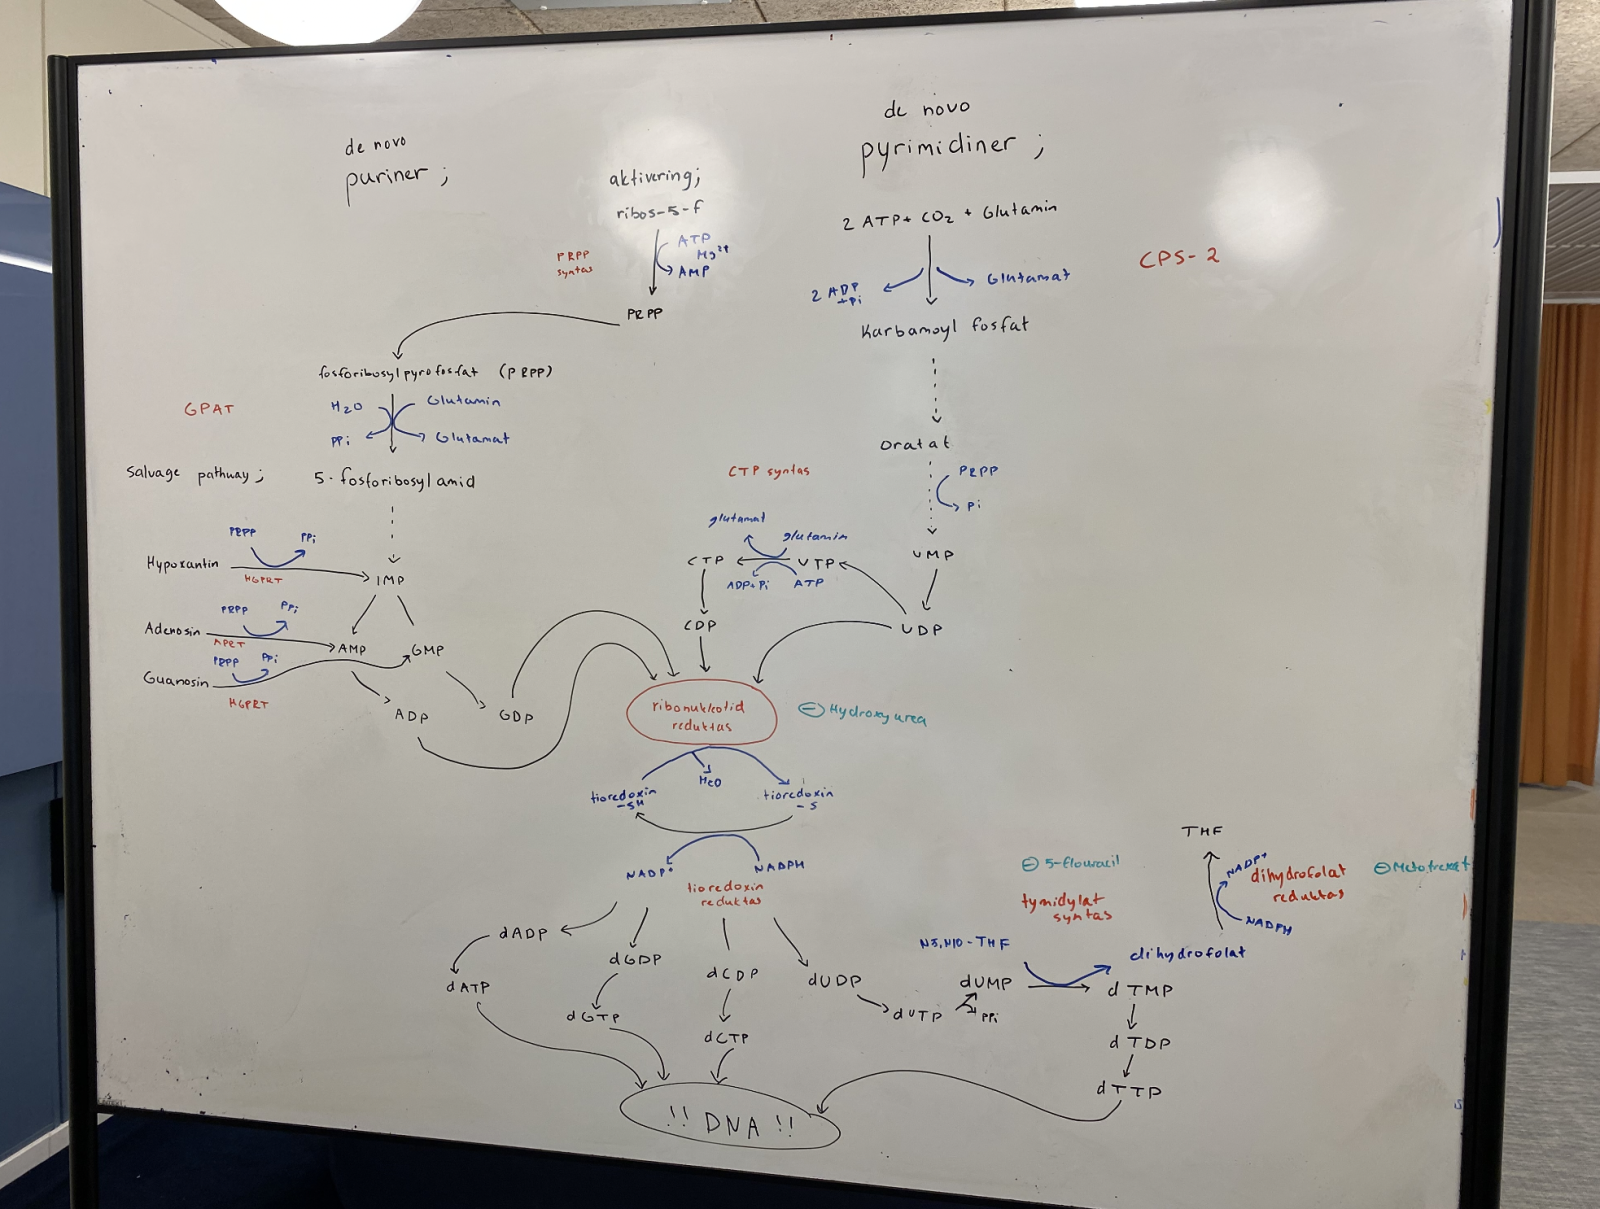 de novo
puriner ;
aktivering;
ribos-5-f
PRPP
syntas
ATP
Mg2+
AMP
PRPP
de novo
pyrimidiner ;
2 ATP + CO2 + Glutamin
CPS-2
2 ADP
+Pi
Glutamat
Karbamoyl fosfat
Oratat
PRPP
Pi
UMP
UDP
fosforibosylpyrofosfat (PRPP)
GPAT
H2O
Glutamin
PPi
Glutamat
5-fosforibosylamid
Salvage pathway ;
PRPP
PPi
Hypoxantin
HGPRT
IMP
PRPP
PPi
Adenosin
APRT
AMP
GMP
PRPP
PPi
Guanosin
HGPRT
ADP
GDP
CTP syntas
glutamat
glutamin
CTP
UTP
ADP+Pi
ATP
CDP
ribonukleotid
reduktas
⊖ Hydroxyurea
H2O
tioredoxin
-SH
tioredoxin
-S
NADP+
NADPH
tioredoxin
reduktas
dADP
dATP
dGDP
dGTP
dCDP
dCTP
dUDP
dUTP
PPi
dUMP
N5,N10-THF
⊖ 5-flouracil
tymidylat
syntas
THF
NADP+
dihydrofolat
reduktas
⊖ Metotrexat
NADPH
dihydrofolat
dTMP
dTDP
dTTP
!! DNA !!